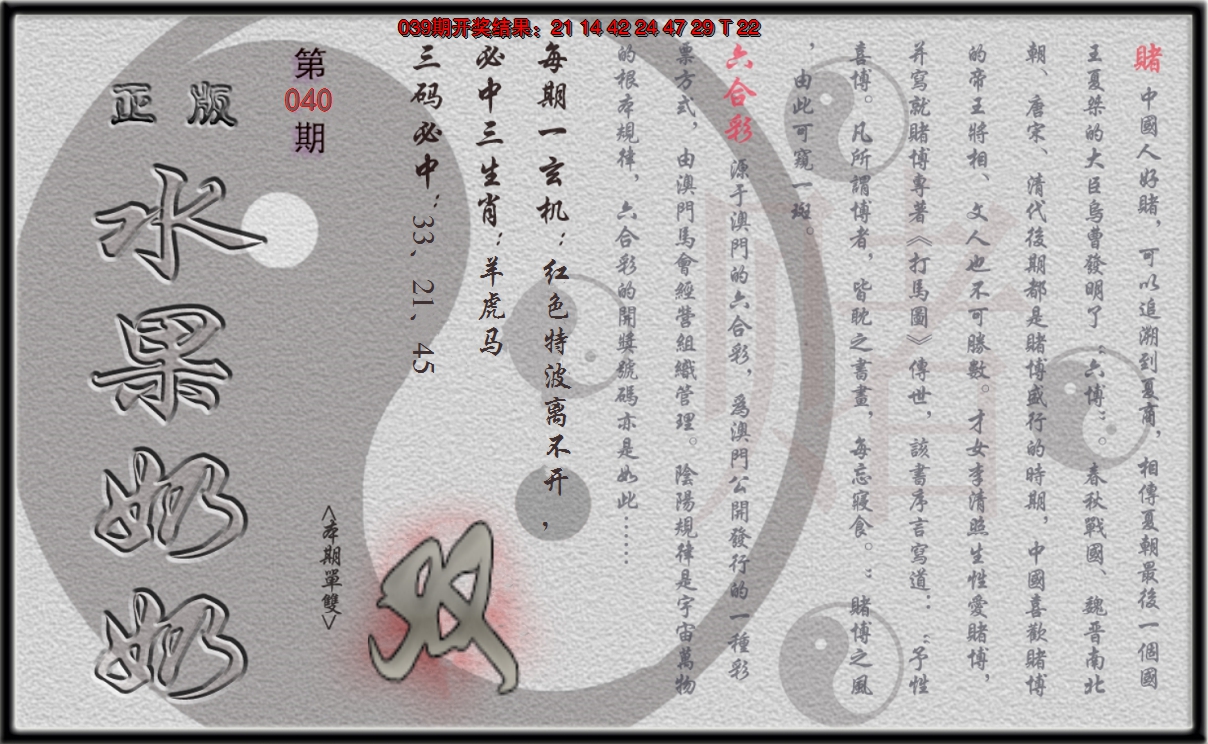 039期开奖结果：21 14 42 24 47 29 T 22
賭 中國人好賭，可以追溯到夏商，相傳夏朝最後一個國
王夏桀的大臣烏曹發明了“六博”。春秋戰國、魏晋南北
朝、唐宋、清代後期都是賭博盛行的時期，中國喜歡賭博
的帝王將相、文人也不可勝數。才女李清照生性愛賭博，
并寫就賭博專著《打馬圖》傳世，該書序言寫道：“予性
喜博。凡所謂博者，皆耽之書畫，每忘寢食。”賭博之風
，由此可窺一斑。
六合彩 源于澳門的六合彩，爲澳門公開發行的一種彩
票方式，由澳門馬會經營組織管理。陰陽規律是宇宙萬物
的根本規律，六合彩的開獎號碼亦是如此……
每期一玄机：红色特波离不开，
必中三生肖：羊虎马
三码必中：33、21、45
第
040
期
正版
水果奶奶
<本期單雙>
双
赌